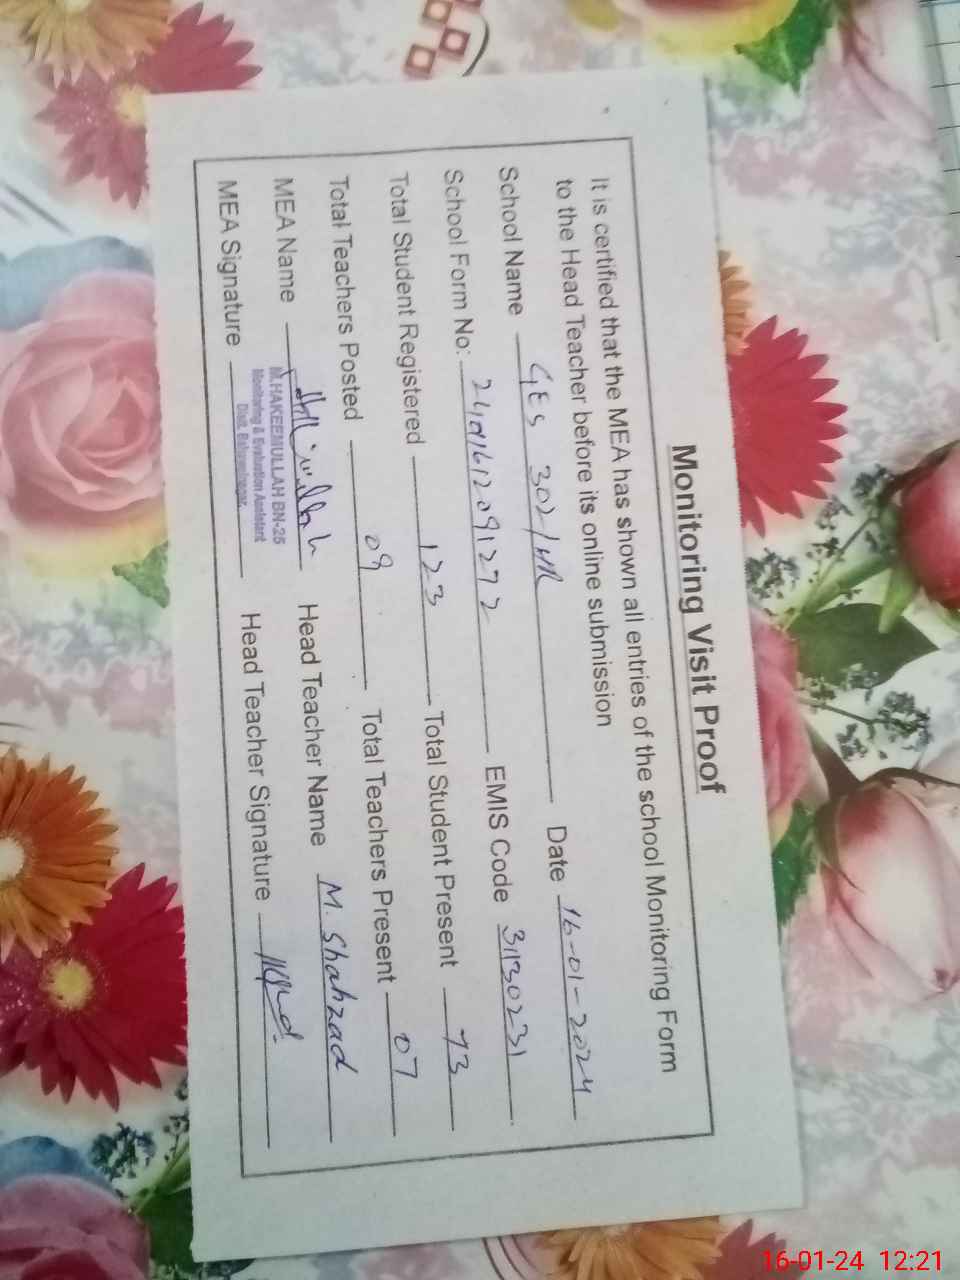 Monitoring Visit Proof
It is certified that the MEA has shown all entries of the school Monitoring Form
to the Head Teacher before its online submission
School Name GES 302/HR Date 16-01-2024
School Form No: EMIS Code 31130231
Total Student Registered 123 Total Student Present 73
Total Teachers Posted 09 Total Teachers Present 07
MEA Name Head Teacher Name M. Shahzad
M.HAKEEMULLAH BN-25
Monitoring & Evaluation Assistent
Distt. Bahawalnagar.
MEA Signature Head Teacher Signature
16-01-24 12:21